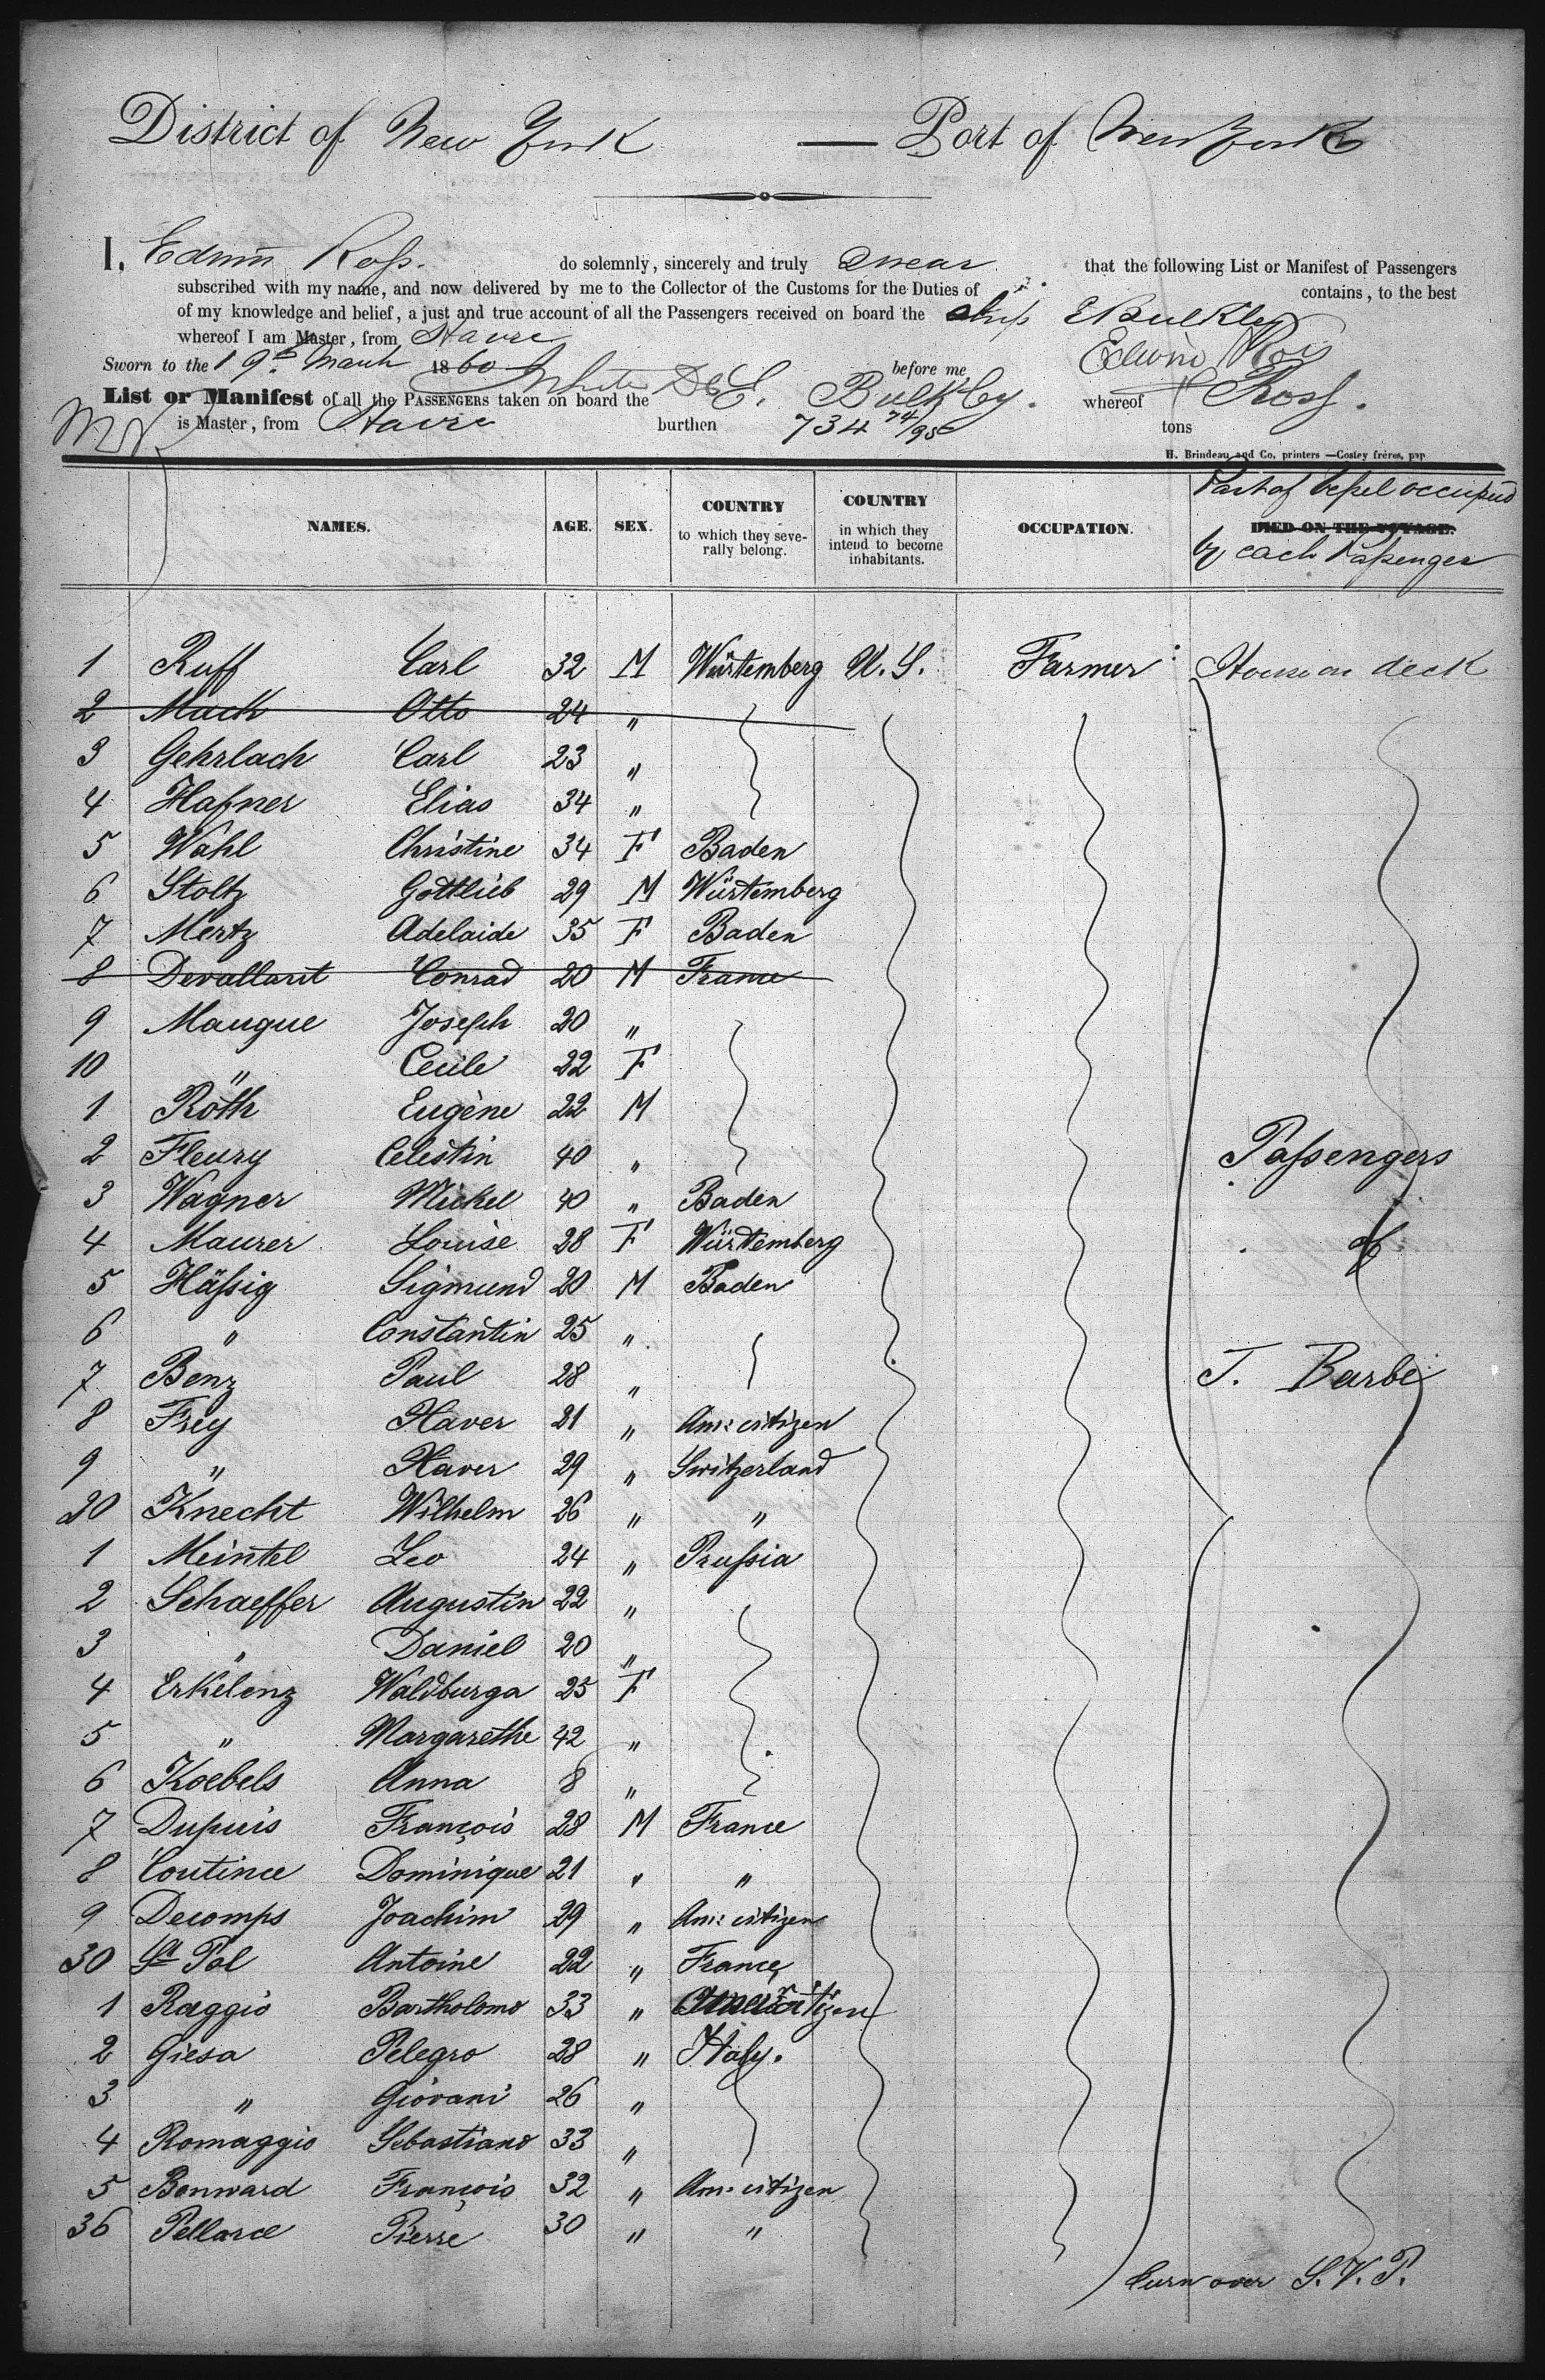 District of New York — Port of New York
I, Edwin Ross. do solemnly, sincerely and truly swear that the following List or Manifest of Passengers
subscribed with my name, and now delivered by me to the Collector of the Customs for the Duties of contains, to the best
of my knowledge and belief, a just and true account of all the Passengers received on board the Ship E Bulkley
whereof I am Master, from Havre
Edwin Ross
Sworn to the 19th March 1860 before me
List or Manifest of all the PASSENGERS taken on board the E. Bulkley. whereof Ross.
is Master, from Havre burthen 734 74/95 tons
H. Brindeau and Co, printers — Costey frères, pap
NAMES. AGE. SEX. COUNTRY to which they severally belong. COUNTRY in which they intend to become inhabitants. OCCUPATION. DIED ON THE VOYAGE.
Part of Vessel occupied
by each Passenger
1 Ruff Carl 32 M Würtemberg U.S. Farmer House on deck
2 Mack Otto 24 "
3 Gehrlach Carl 23 "
4 Hafner Elias 34 "
5 Wahl Christine 34 F Baden
6 Stoltz Gottlieb 29 M Würtemberg
7 Mertz Adelaide 35 F Baden
8 Devallant Conrad 20 M France
9 Maugue Joseph 20 "
10 " Cecile 22 F
1 Roth Eugène 22 M
2 Fleury Celestin 40 " Passengers
3 Wagner Michel 40 " Baden
4 Maurer Louise 28 F Würtemberg of
5 Hässig Sigmund 20 M Baden
6 " Constantin 25 "
7 Benz Paul 28 " J. Barbe
8 Frey Xaver 21 " Am: citizen
9 " Xaver 29 " Switzerland
20 Knecht Wilhelm 26 " "
1 Meintel Leo 24 " Prussia
2 Schaeffer Augustin 22 "
3 " Daniel 20 "
4 Erkelenz Waldburga 25 F
5 " Margarethe 42 "
6 Koebels Anna 8 "
7 Dupuis François 28 M France
8 Coutince Dominique 21 " "
9 Decomps Joachim 29 " Am: citizen
30 St Pol Antoine 22 " France
1 Raggio Bartholomo 33 " citizen
2 Giesa Pelegro 28 " Italy.
3 " Giovani 26 "
4 Romaggio Sebastiano 33 "
5 Bonward François 32 " Am: citizen
36 Pellarce Pierre 30 " "
turn over S.V.P.